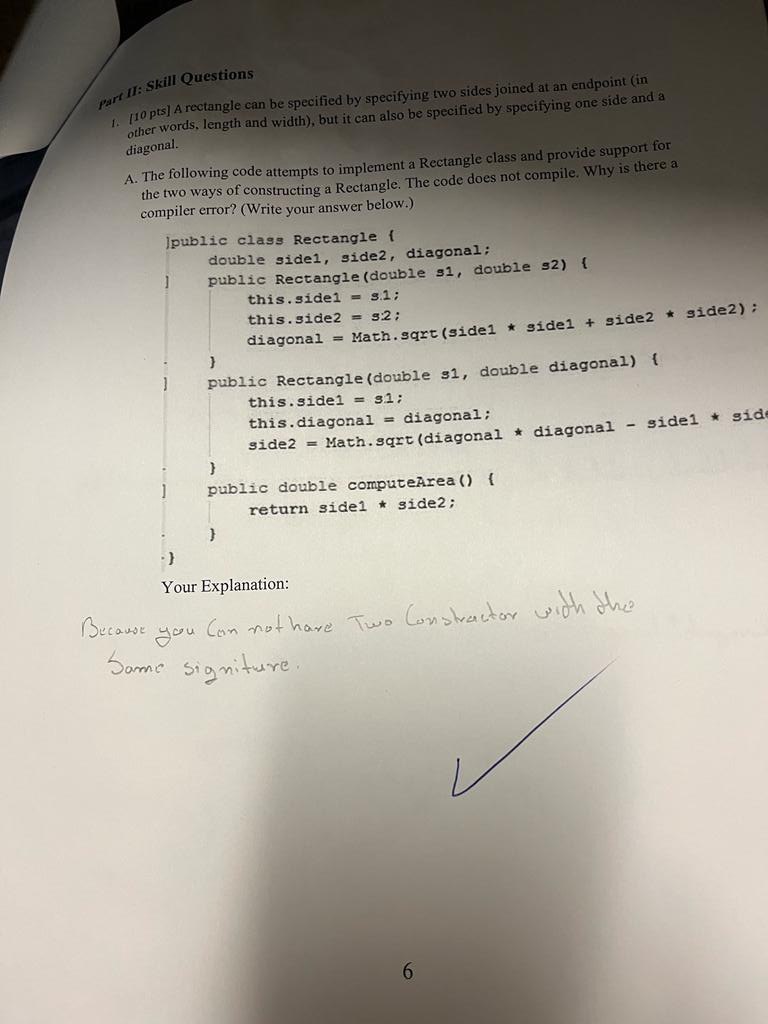 Part II: Skill Questions
1. [10 pts] A rectangle can be specified by specifying two sides joined at an endpoint (in
other words, length and width), but it can also be specified by specifying one side and a
diagonal.
A. The following code attempts to implement a Rectangle class and provide support for
the two ways of constructing a Rectangle. The code does not compile. Why is there a
compiler error? (Write your answer below.)
]public class Rectangle {
double side1, side2, diagonal;
] public Rectangle(double s1, double s2) {
this.side1 = s1;
this.side2 = s2;
diagonal = Math.sqrt(side1 * side1 + side2 * side2);
}
] public Rectangle(double s1, double diagonal) {
this.side1 = s1;
this.diagonal = diagonal;
side2 = Math.sqrt(diagonal * diagonal - side1 * side
}
] public double computeArea() {
return side1 * side2;
}
}
Your Explanation:
Because you Can not have Two Constractor with the
Same signiture.
6